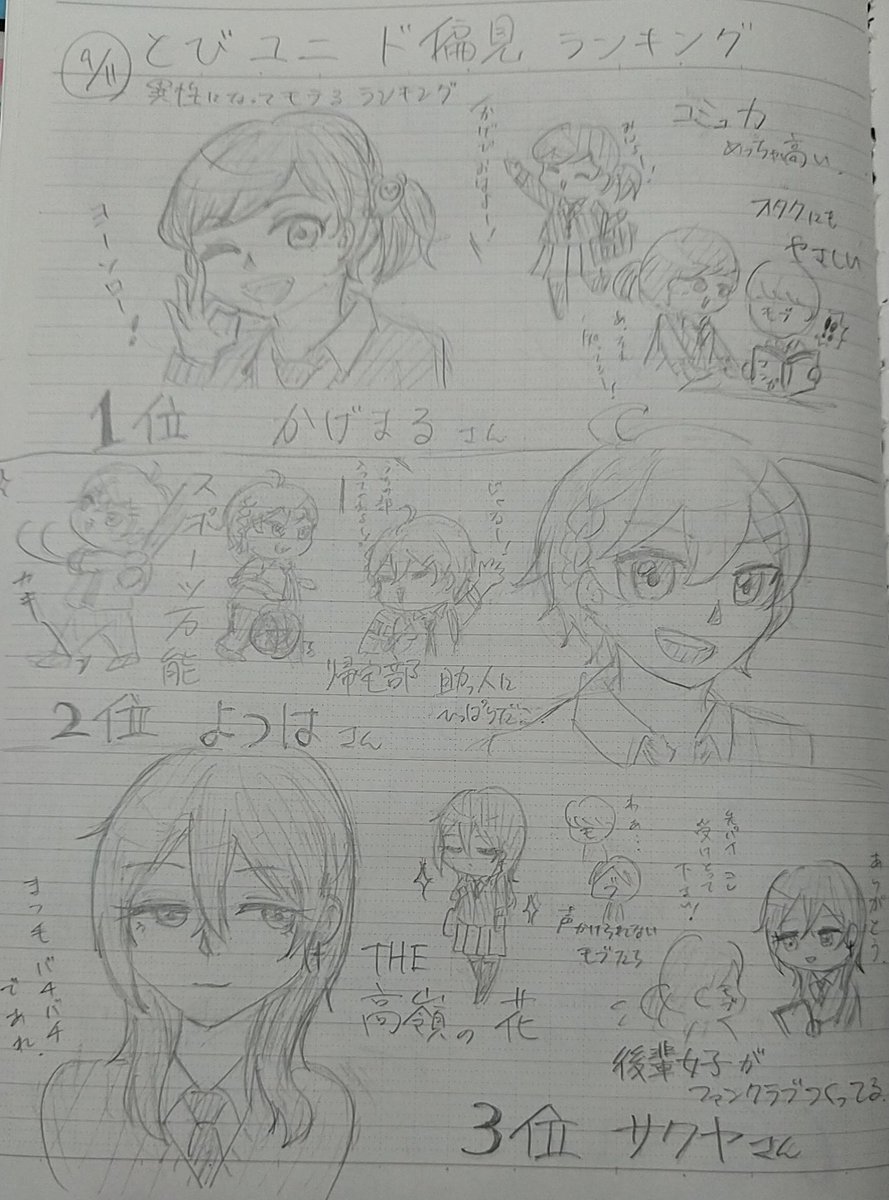 9/11
とびユニ ド偏見 ランキング
異性になってモテるランキング
ヨーソロー!
おはよー!
コミュ力
めっちゃ高い
オタクにも
やさしい
モブ
!!
1位 かげまるさん
スポーツ万能
帰宅部
助っ人に
ひっぱりだこ
2位 よつはさん
まつ毛バチバチ
であれ
THE
高嶺の花
わぁ…
モ
ブ
声かけられない
モブたち
受けとって
下さい!
ありがとう
後輩女子が
ファンクラブつくってる
3位 サクヤさん